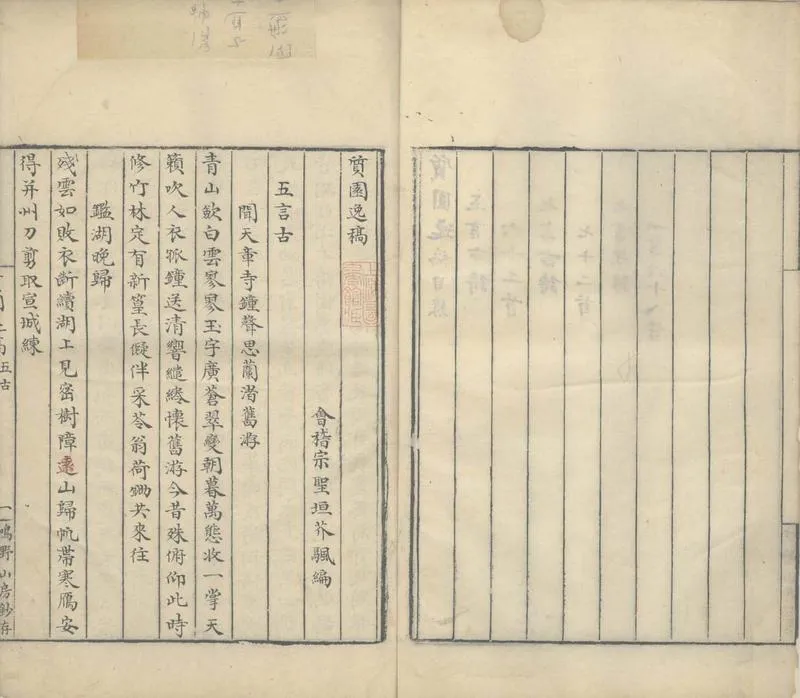 質園逸稿
會稽宗聖垣芥颿編
五言古
聞天章寺鐘聲思蘭渚舊游
青山斂白雲寥寥玉宇廣蒼翠變朝暮萬態收一掌天
籟吹人衣孤鐘送清響繾綣懷舊游今昔殊俯仰此時
修竹林定有新篁長儗伴采苓翁荷鋤共來往
鑑湖晚歸
殘雲如敗衣斷續湖上見密樹障遠山歸帆帶寒鴈安
得并州刀剪取宣城練
五古
一
鳴野山房鈔存